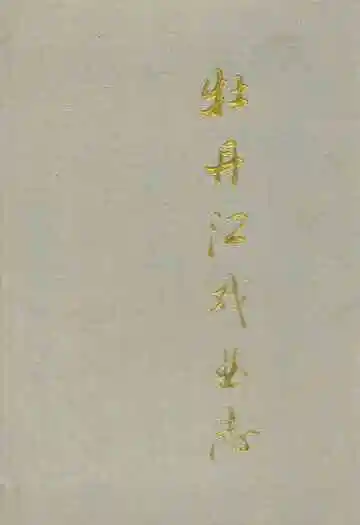 牡丹江戏曲志